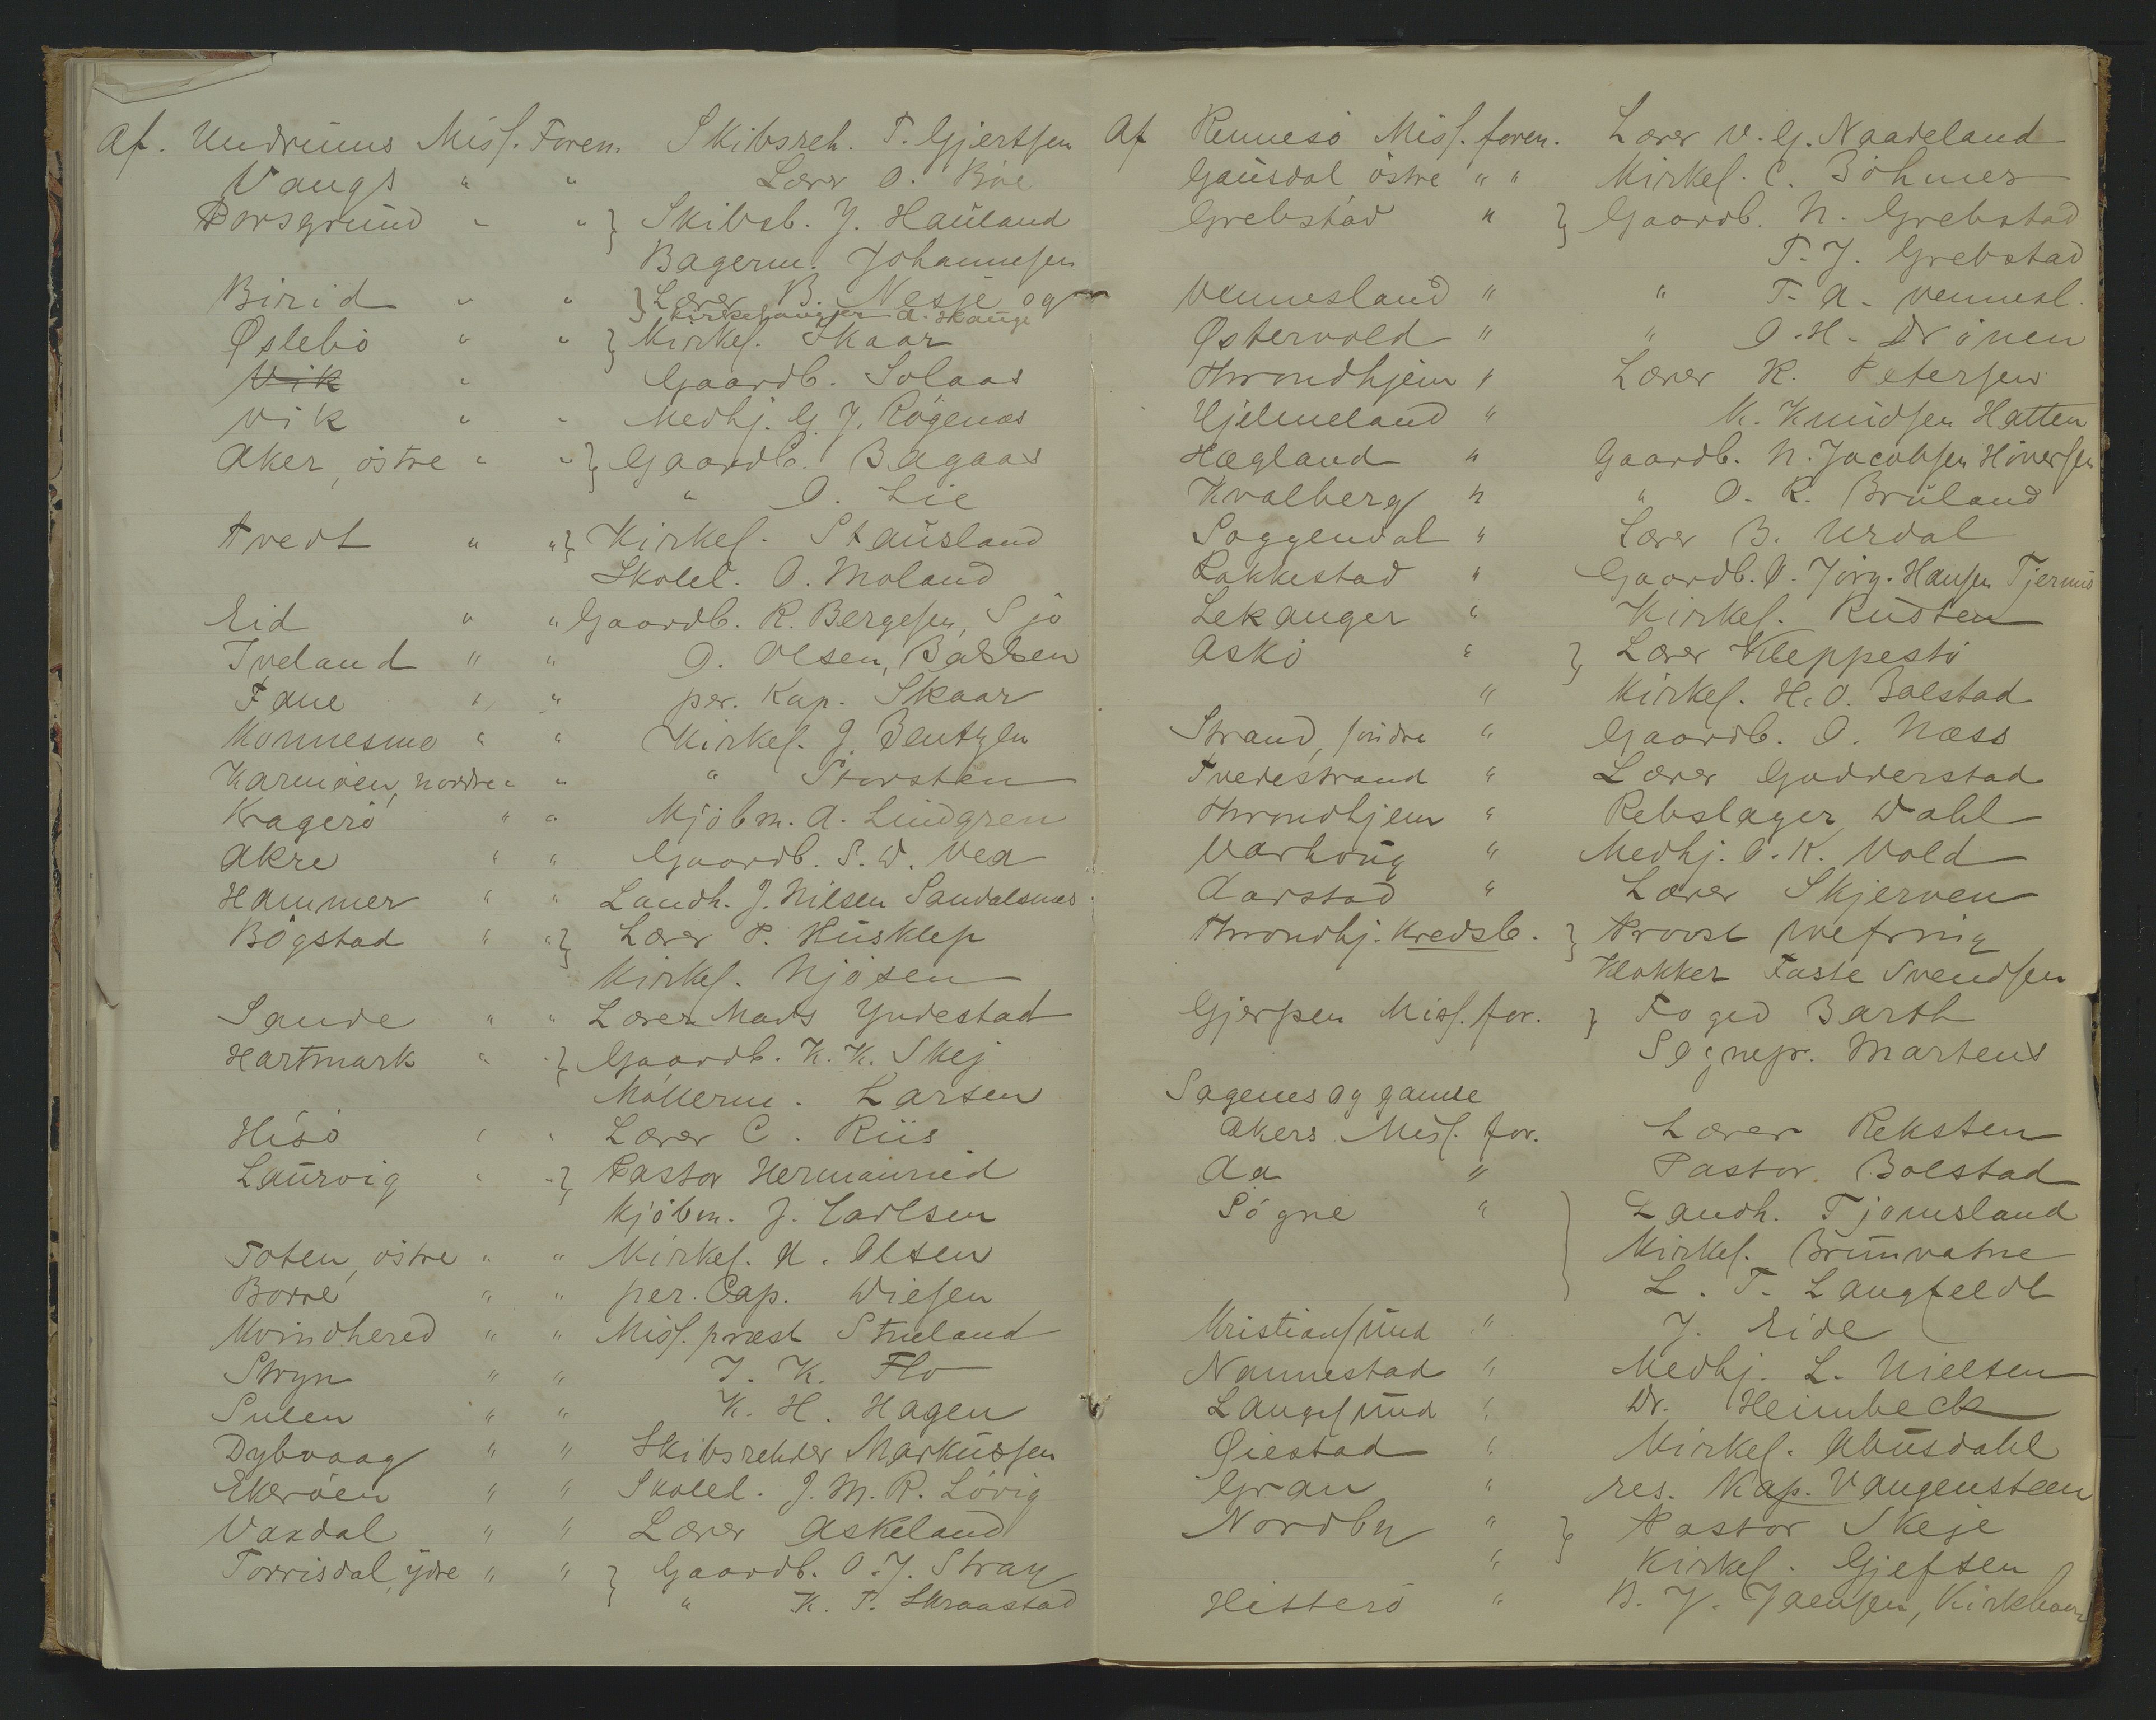 Af. Undrums Miss. Foren. Skibsreh. T. Gjertsen
Vangs " " Lærer O. Böe
Porsgrund " " } Skibsb. J. Hauland
Bagerm. Johannesen
Birid " " } Lærer B. Nesje og
Kirkesanger A. Skauge
Øslebö " " } Kirkes. Skaar
Vik " Gaardb. Solaas
Vik " " Medhj. G. J. Rögenæs
Aker, östre " " } Gaardb. Bagaas
" O. Lie
Tvedt " " } Kirkes. Stausland
Skolel. O. Moland
Eid " " Gaardb. R. Bergesen, Sjo
Iveland " " O. Olsen, Bakken
Fane " " per. Kap. Skaar
Konnesmo " " Kirkes. J. Bentzen
Karmöen, nordre " " " Storsten
Kragerö " " Kjöbm. A. Lindgren
Akre " " Gaardb. S. W. Vea
Hammer " " Landh. J. Nilsen Sandalsnæs
Bögstad " " } Lærer P. Husklep
Kirkes. Njösen
Sande " " Lærer Mads Yndestad
Hartmark " " } Gaardb. K. K. Skej
Möllerm. Larsen
Hisö " " Lærer C. Riis
Laurvig " " } Pastor Hermanrud
Kjöbm. J. Carlsen
Toten, östre " " Kirkes. A. Olsen
Borre " " per. Cap. Wiesen
Kvindhered " " Miss. præst Stueland
Stryn " " J. K. Flo
Sulen " " K. H. Hagen
Dybvaag " " Skibsrehder Markussen
Ekeröen " " Skolel. J. M. R. Lövig
Vaxdal " " Lærer Askeland
Torrisdal, ydre " " } Gaardb. O. J. Stray
" K. T. Skraastad
Af Rennesö Miss. foren. Lærer V. G. Naadeland
Gausdal östre " " Kirkes. C. Böhmer
Grebstad " } Gaardb. N. Grebstad
T. J. Grebstad
Vennesland " " T. A. Vennesl.
Østervold " " O. H. Drönen
Throndhjem " Lærer K. Petersen
Hjelmeland " K. Knudsen Hatten
Hægland " Gaardb. N. Jacobsen Hönersen
Kvalberg " " O. R. Bruland
Soggendal " Lærer B. Urdal
Rakkestad " Gaardb. O. Jörg. Hansen Tjernæs
Lekanger " Kirkes. Rusten
Askö " } Lærer Kleppestö
" Kirkes. H. O. Bolstad
Strand, söndre " Gaardb. O. Næss
Tvedestrand " Lærer Godderstad
Throndhjem " Rebslager Wahl
Varhoug " Medhj. O. K. Vold
Aarstad " Lærer Skjerven
Throndhj. Kredsb. } Provst Wefring
Klokker Faste Svendsen
Gjerpen Miss. for. } Foged Barth
Sognepr. Martens
Sagenes og gamle
Akers Miss. for. Lærer Reksten
Aa " Pastor Bolstad
Sögne " } Landh. Tjomsland
Kirkes. Brunvatne
L. T. Langfeldt
Kristiansund " J. Eide
Nannestad " Medhj. L. Nielsen
Langesund " Dr. Heimbeck
Øiestad " Kirkes. Abusdahl
Gran " res. Kap. Vangensteen
Nordby " } Pastor Skeje
" Kirkes. Gjefsen
Hitterö " B. J. Jaensen, Kirkhavn